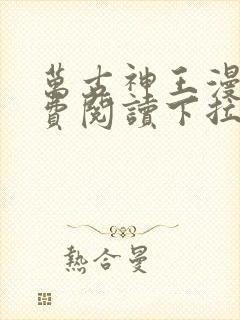 萬古神王漫
費閱讀下拉
熱合曼